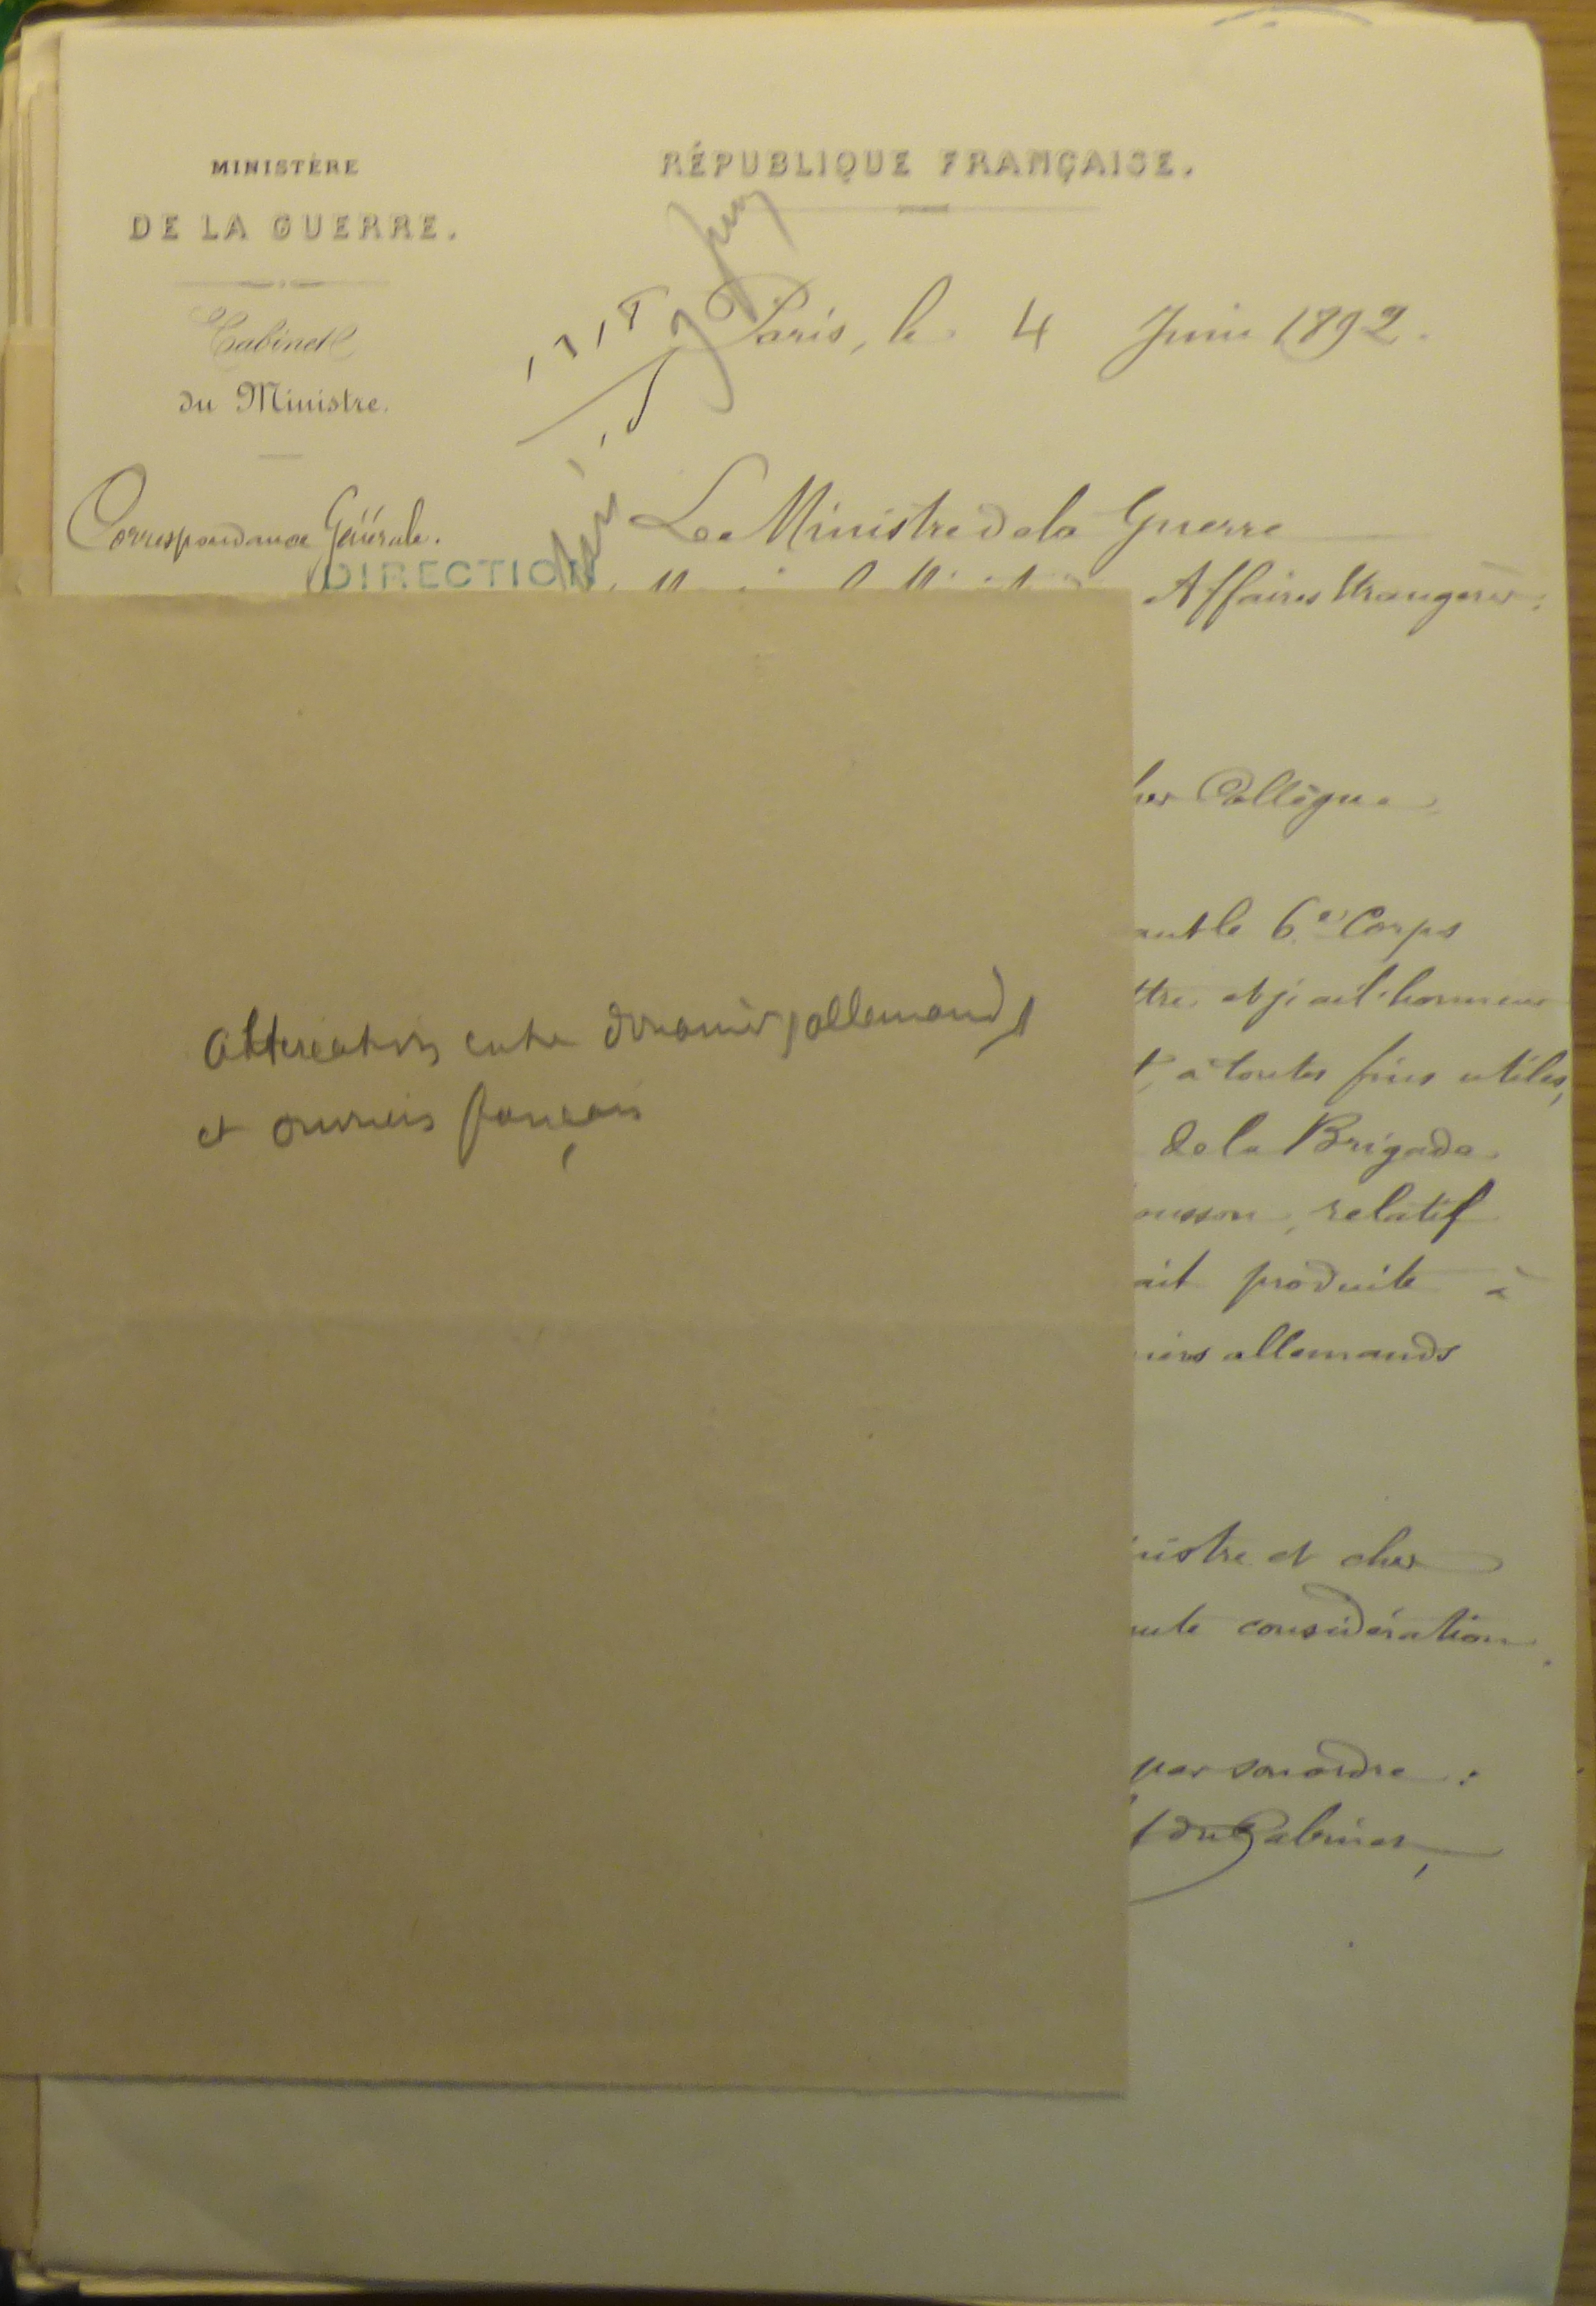 MINISTÈRE
DE LA GUERRE.
Cabinet
du Ministre.
Correspondance Générale.
DIRECTION
RÉPUBLIQUE FRANÇAISE.
Paris, le 4 Juin 1892.
Le Ministre de la Guerre
Affaires Etrangères.
her Collègue
ant le 6e Corps
ttre et j'ai l'honneur
t, à toutes fins utiles,
de la Brigade
ousson, relatif
ait produite à
niers allemands
nistre et cher
aute considération.
par son ordre :
f du Cabinet,
Altercation entre douaniers allemands
et ouvriers français